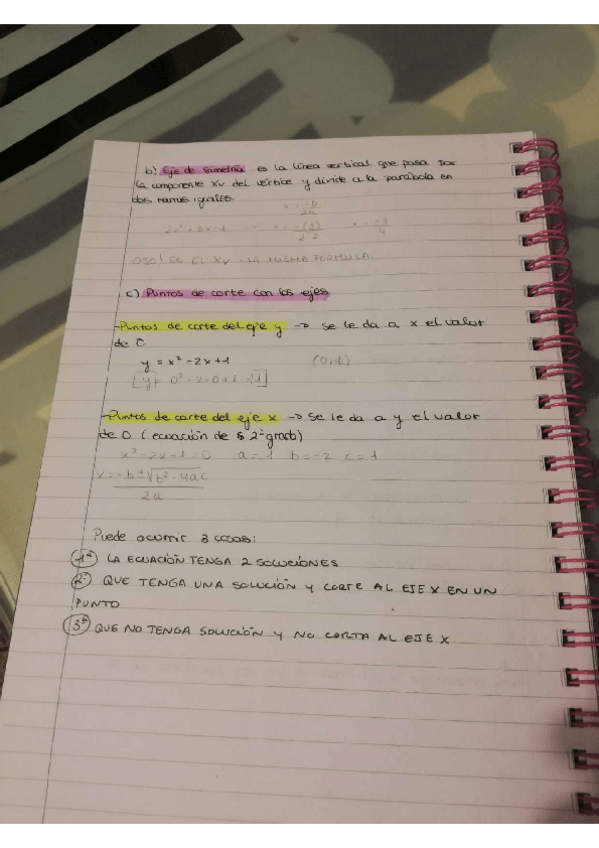 b) Eje de simetría es la línea vertical que pasa por
la componente Xv del vértice y divide a la parábola en
dos ramas iguales.
x = -b/2a
2x² + 3x - 1 → x = -(3)/2·2 x = -3/4
OJO! ES EL XV, LA MISMA FORMULA
c) Puntos de corte con los ejes
-Puntos de corte del eje y → se le da a x el valor
de 0
y = x² - 2x + 1 (0,1)
[y = 0² - 2·0 + 1 = 1]
-Puntos de corte del eje x → se le da a y el valor
de 0 (ecuación de 2º grado)
x² - 2x + 1 = 0 a = 1 b = -2 c = 1
x = -b ± √b² - 4ac
2a
Puede ocurrir 3 cosas:
1ª LA ECUACIÓN TENGA 2 SOLUCIONES
2ª QUE TENGA UNA SOLUCIÓN Y CORTE AL EJE X EN UN
PUNTO
3ª QUE NO TENGA SOLUCIÓN Y NO CORTA AL EJE X